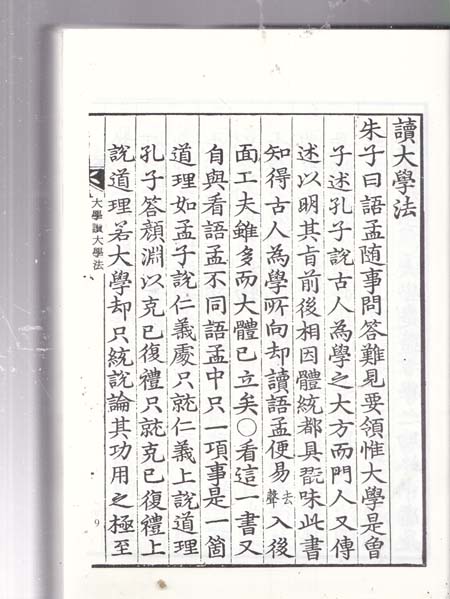 讀大學法
朱子曰語孟随事問答難見要領惟大學是曾
子述孔子說古人為學之大方而門人又傳
述以明其旨前後相因體統都具翫味此書
知得古人為學所向却讀語孟便易去聲入後
面工夫雖多而大體已立矣○看這一書又
自與看語孟不同語孟中只一項事是一箇
道理如孟子說仁義處只就仁義上說道理
孔子答顏淵以克己復禮只就克己復禮上
說道理若大學却只統說論其功用之極至
大學讀大學法
9